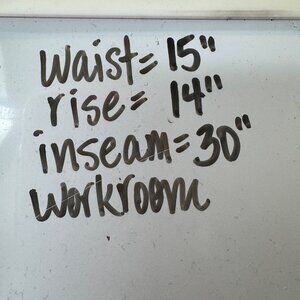 waist= 15"
rise= 14"
inseam=30"
workroom